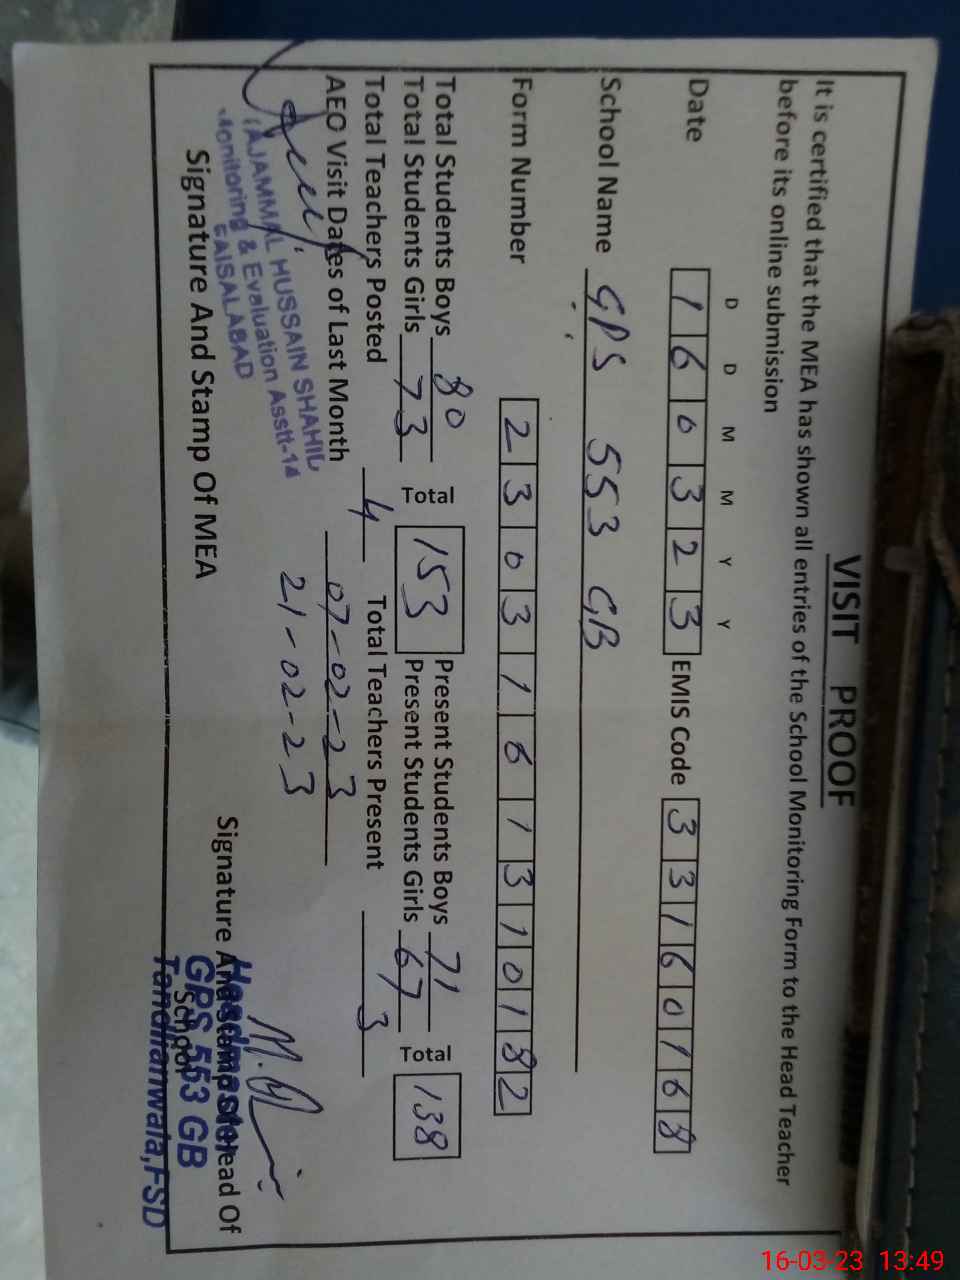 VISIT PROOF
It is certified that the MEA has shown all entries of the School Monitoring Form to the Head Teacher
before its online submission
D D M M Y Y
Date 160323 EMIS Code 33160168
School Name GPS 553 GB
Form Number 2303161310182
Total Students Boys 80 Present Students Boys 71
Total Students Girls 73 Total 153 Present Students Girls 67 Total 138
Total Teachers Posted 4 Total Teachers Present 3
AEO Visit Dates of Last Month 07-02-23
21-02-23
TAJAMMAL HUSSAIN SHAHID
Monitoring & Evaluation Asstt-14
FAISALABAD
Signature And Stamp Of MEA
Signature And Stamp Of Head Of
School
Headmaster
GPS 553 GB
Tandlianwala,FSD
16-03-23 13:49